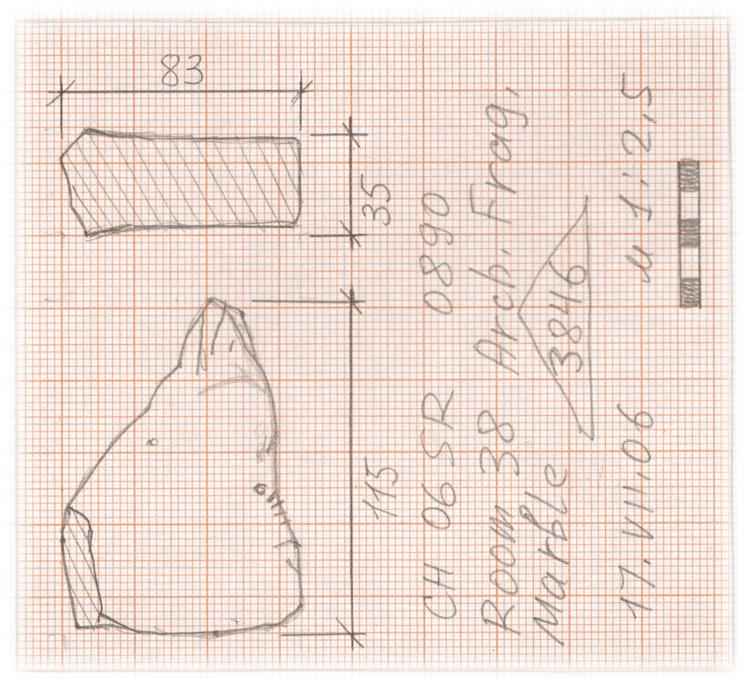 83
35
115
CH 06 SR 0890
Room 38 Arch. Frag,
Marble 3846
17.VII.06 M 1:2,5